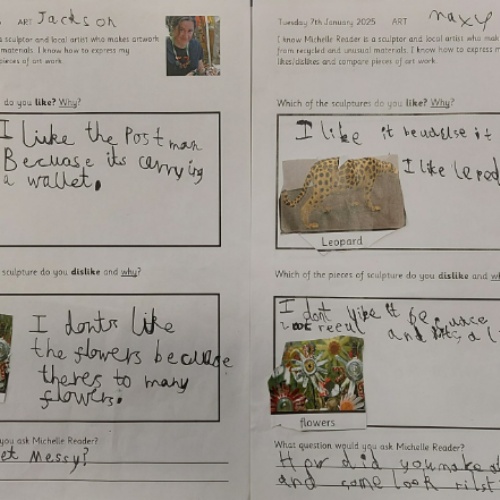 ART Jackson
sculptor and local artist who makes artwork
materials. I know how to express my
pieces of art work.
do you like? Why?
I lieke the Post man
Becuase its carrying
a wallet.
sculpture do you dislike and why?
I donts like
the flowers becuase
theres to many
flowers.
you ask Michelle Reader?
et Messy?
Tuesday 7th January 2025 ART
I know Michelle Reader is a sculptor and local artist who mak
from recycled and unusual materials. I know how to express
likes/dislikes and compare pieces of art work.
Which of the sculptures do you like? Why?
I like it
I like
Leopard
Which of the pieces of sculpture do you dislike and wh
I dont like it
and
flowers
What question would you ask Michelle Reader?
How did you make
and some look